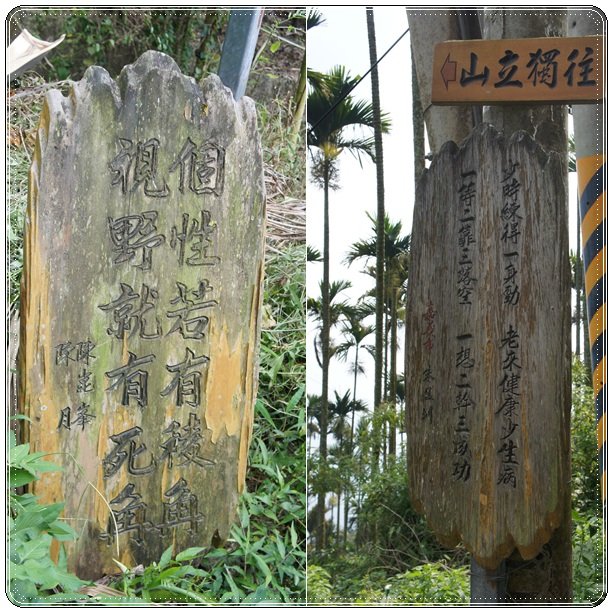 個性若有稜角
視野就有死角
陳崑峯
陳月
往獨立山
少時練得一身勁 老來健康少生病
一等二靠三落空 一想二幹三成功